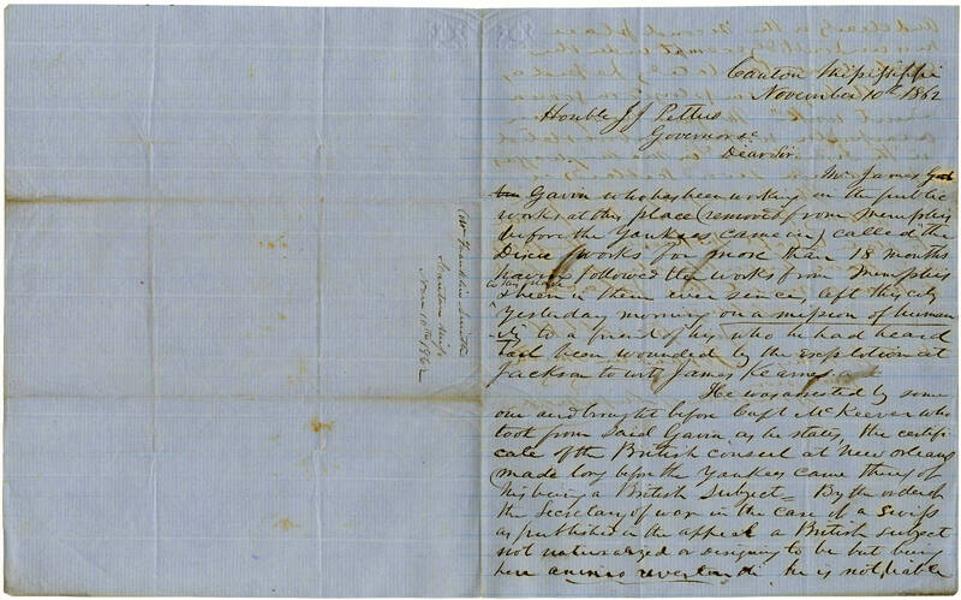 Canton Mississippi
November 10th 1862
Honble J J Pettus
Governor &c
Dear Sir
Mr James
Gavin who has been working in the public
works at this place (removed from Memphis
before the Yankees came in) called "the
works for more than 18 months
having followed the works from Memphis
to this place
& been in them ever since, left this city
yesterday morning on a mission of human
ity to a friend of his who he had heard
had been wounded by the explosion at
Jackson to wit James Kearnes
He was arrested by some
one and brought before Capt McKeever who
took from said Gavin, as he states, the certifi
cate of the British consul at New Orleans
(made long before the Yankees came there) of
his being a British subject = By the order of
the Secretary of war in the case of a Swiss
as published in the appeal a British subject
not naturalized or designing to be but being
here animo revertendi he is not liable
Wm Franklin Smith
Canton Miss
Novr 10th 1862